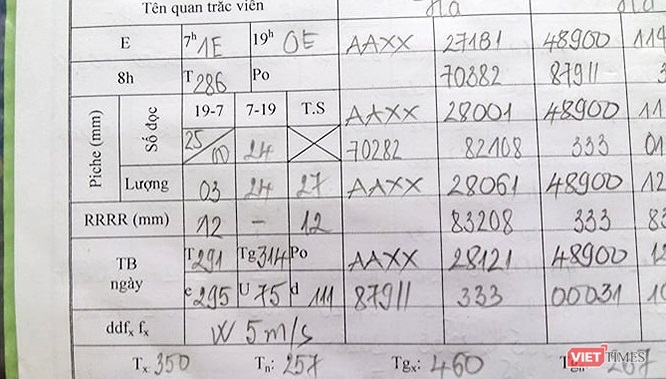 Tên quan trắc viên Ha
E 7h 1E 19h 0E AAXX 27181 48900 114
8h T 286 Po 70382 87911 3
Piche (mm) Số đọc 19-7 7-19 T.S AAXX 28001 48900 11
25/00 24 70282 82108 333 01
Lượng 03 24 27 AAXX 28061 48900 12
RRRR (mm) 12 - 12 83208 333 83
TB ngày T 291 Tg 314 Po AAXX 28121 48900 12
e 295 U 75 d 111 87911 333 00031 10
ddfx fx W 5 m/s
Tx: 350 Tn: 257 Tgx: 460 267
VIETTIMES